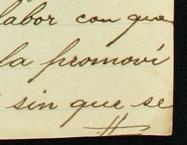 labor con que
la promoví
sin que se